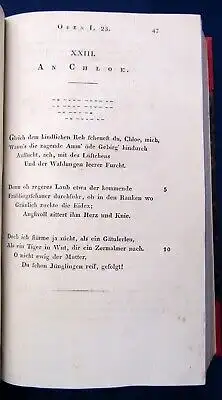 ODEN I, 23. 47
XXIII.
AN CHLOE.
Gleich dem kindlichen Reh scheuest du, Chloe, mich,
Wann's die zagende Amm' öde Gebirg' hindurch
Aufsucht, ach, mit des Lüftchens
Und der Waldungen leerer Furcht.
Denn ob regeres Laub etwa der kommende 5
Frühlingsschauer durchfuhr, ob in den Ranken wo
Grünlich zuckte die Eidex;
Angstvoll zittert ihm Herz und Knie.
Doch ich stürme ja nicht, als ein Gätulerleu,
Als ein Tiger in Wut, dir ein Zermalmer nach. 10
O nicht ewig der Mutter,
Du schon Jünglingen reif, gefolgt!